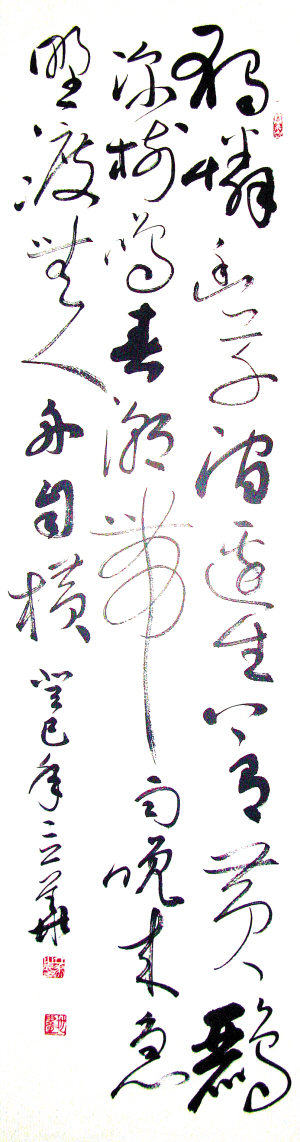 獨憐幽草澗邊生上有黃鸝
深樹鳴春潮帶雨晚來急
野渡無人舟自橫癸巳年